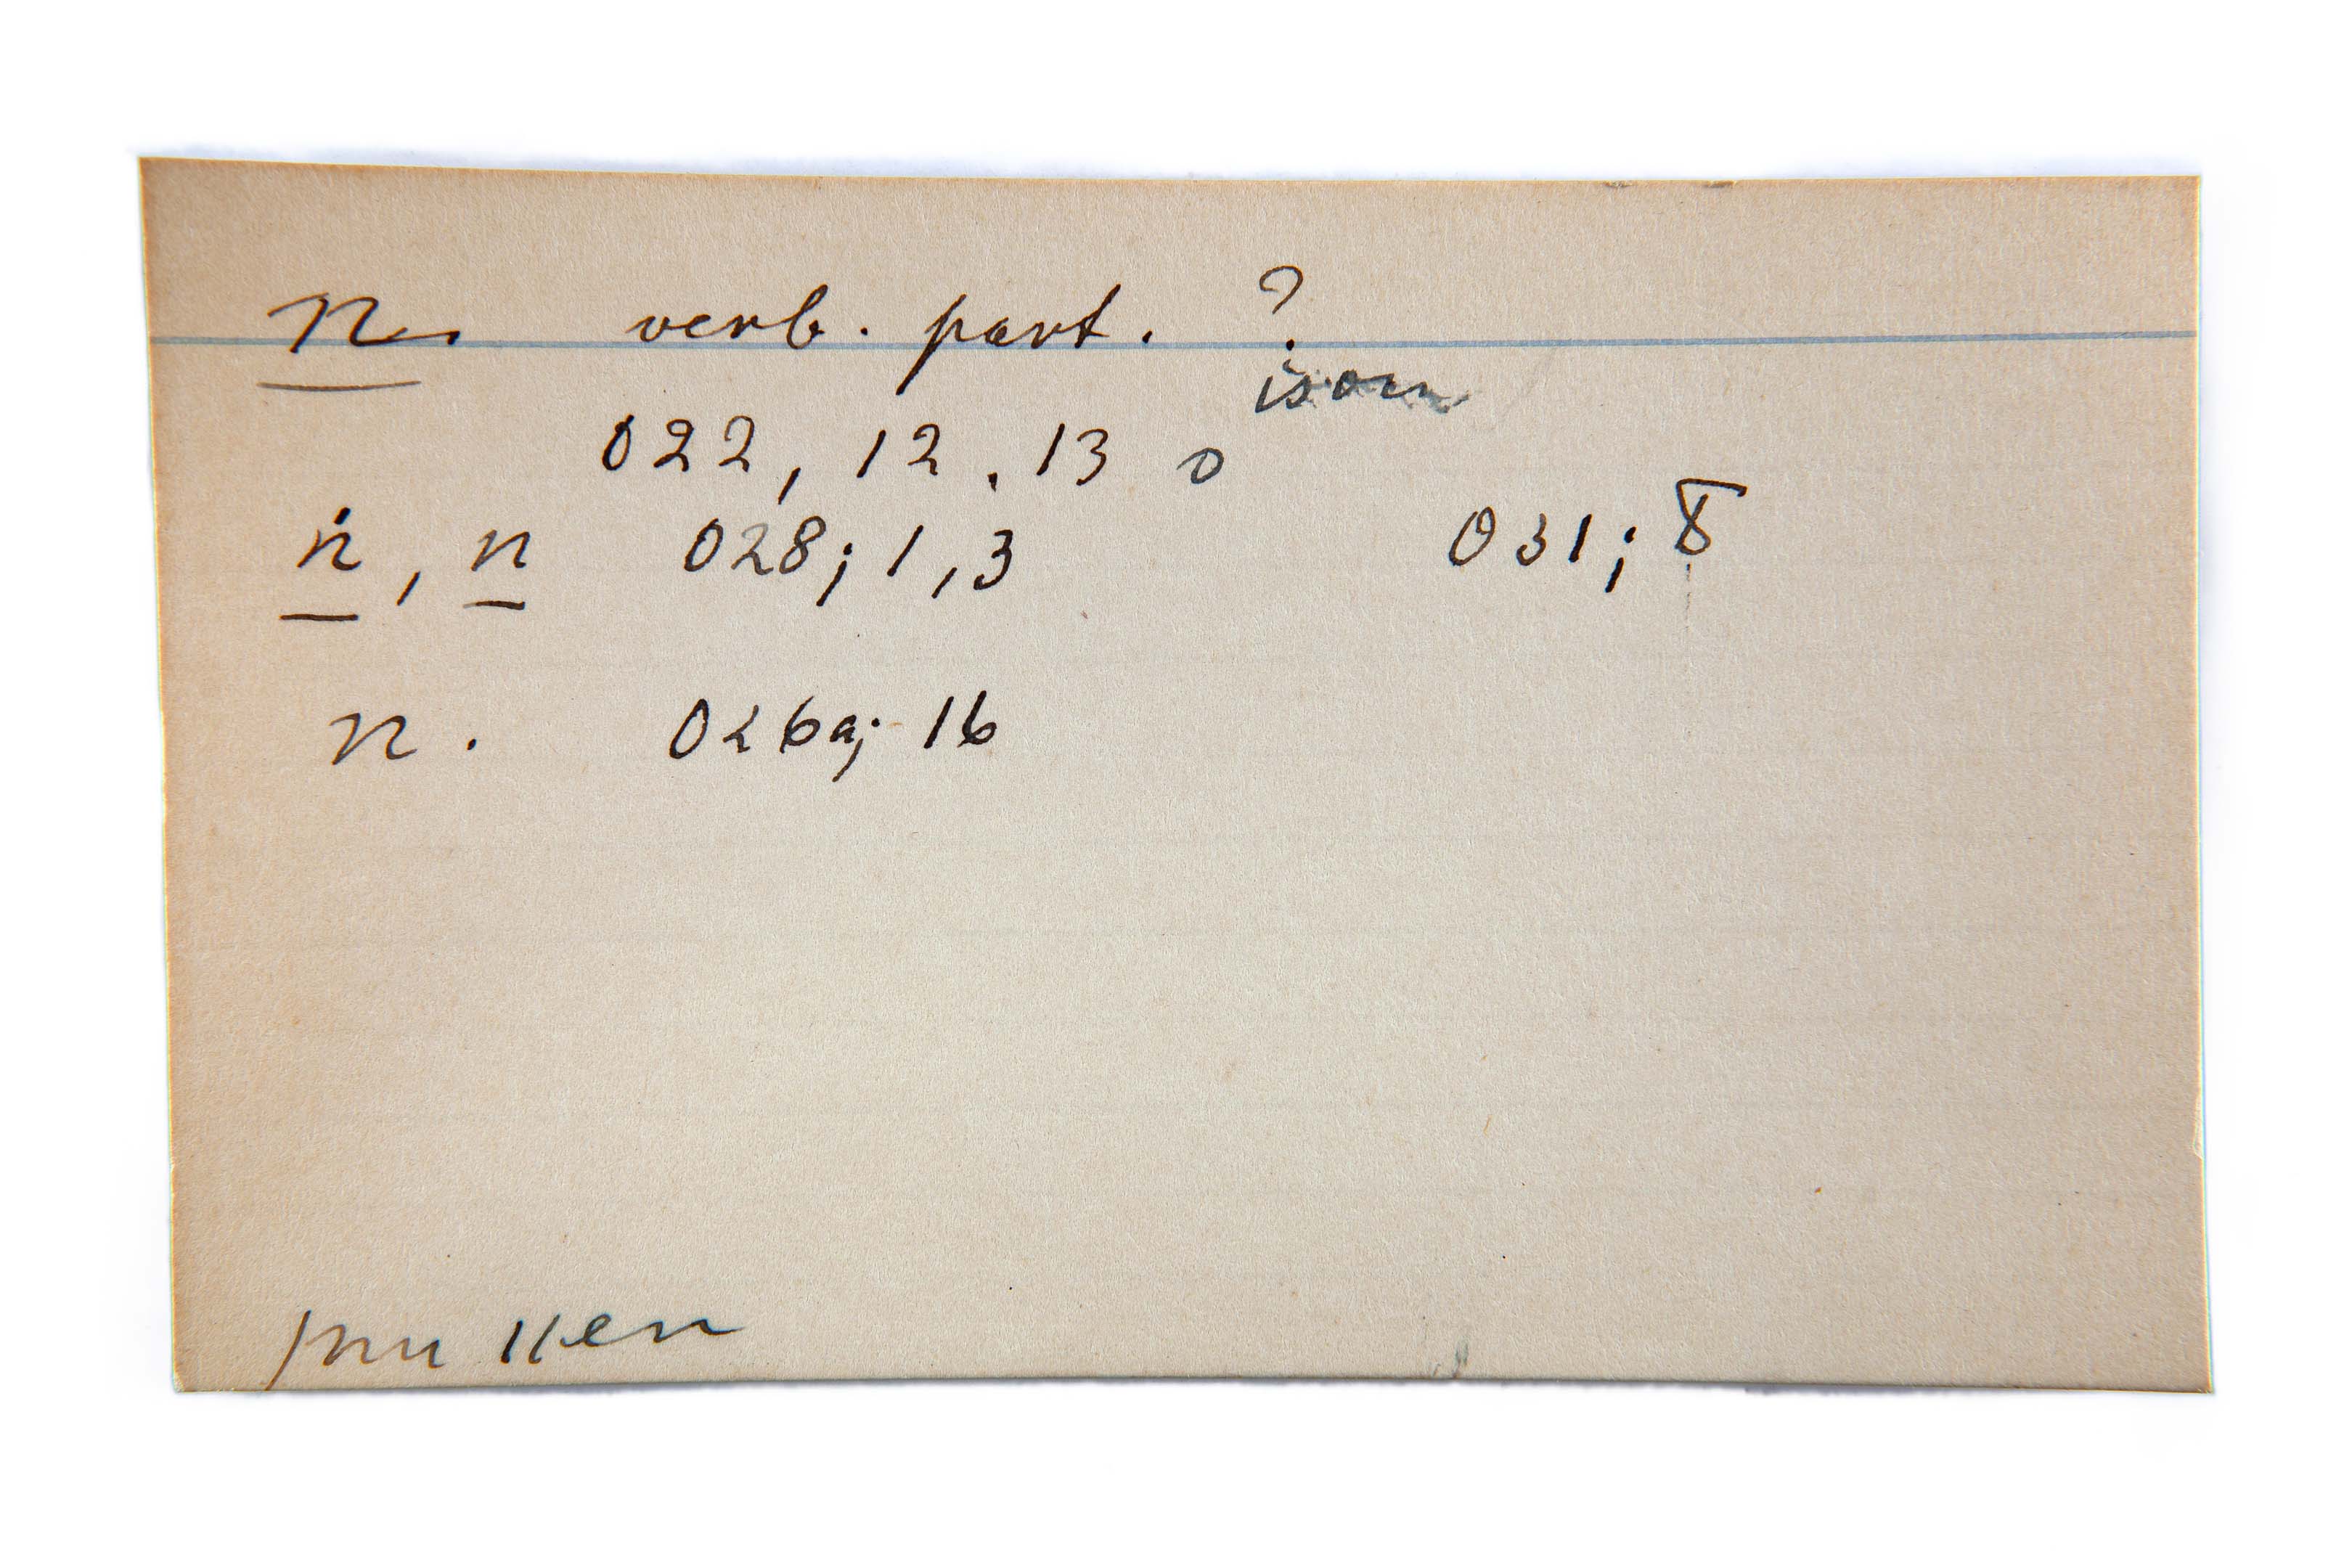 n. verb. part. ?
022, 12. 13 o
ṅ, n 028; 1, 3 031; 8
n. 026a; 16